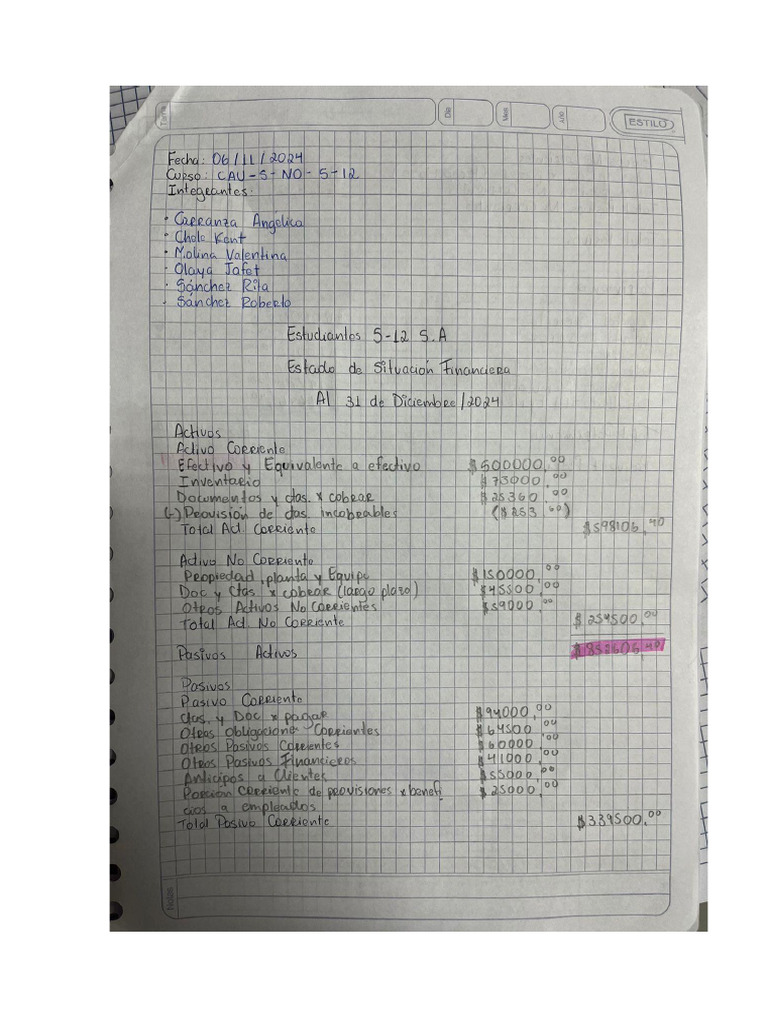 Tema
Día
Mes
Año
ESTILO
Fecha: 06/11/2024
Curso: CAU-S-NO-5-12
Integrantes:
• Carranza Angelica
• Chole Kent
• Molina Valentina
• Olaya Jafet
• Sánchez Rita
• Sánchez Roberto
Estudiantes 5-12 S.A
Estado de Situación Financiera
Al 31 de Diciembre/2024
Activos
Activo Corriente
Efectivo y Equivalente a efectivo $500000,00
Inventario $73000,00
Documentos y ctas. x cobrar $25360,00
(-) Provisión de ctas. incobrables ($253,60)
Total Ad. Corriente $598106,40
Activo No Corriente
Propiedad, planta y Equipo $150000,00
Doc y Ctas x cobrar (largo plazo) $45500,00
Otros Activos No Corrientes $59000,00
Total Ad. No Corriente $254500,00
Pasivos Activos $852606,40
Pasivos
Pasivo Corriente
Ctas. y Doc x pagar $94000,00
Otras Obligaciones Corrientes $64500,00
Otros Pasivos Corrientes $60000,00
Otros Pasivos Financieros $41000,00
Anticipos a Clientes $55000,00
Porción corriente de provisiones x benefi $25000,00
cios a empleados
Total Pasivo Corriente $339500,00
Notas